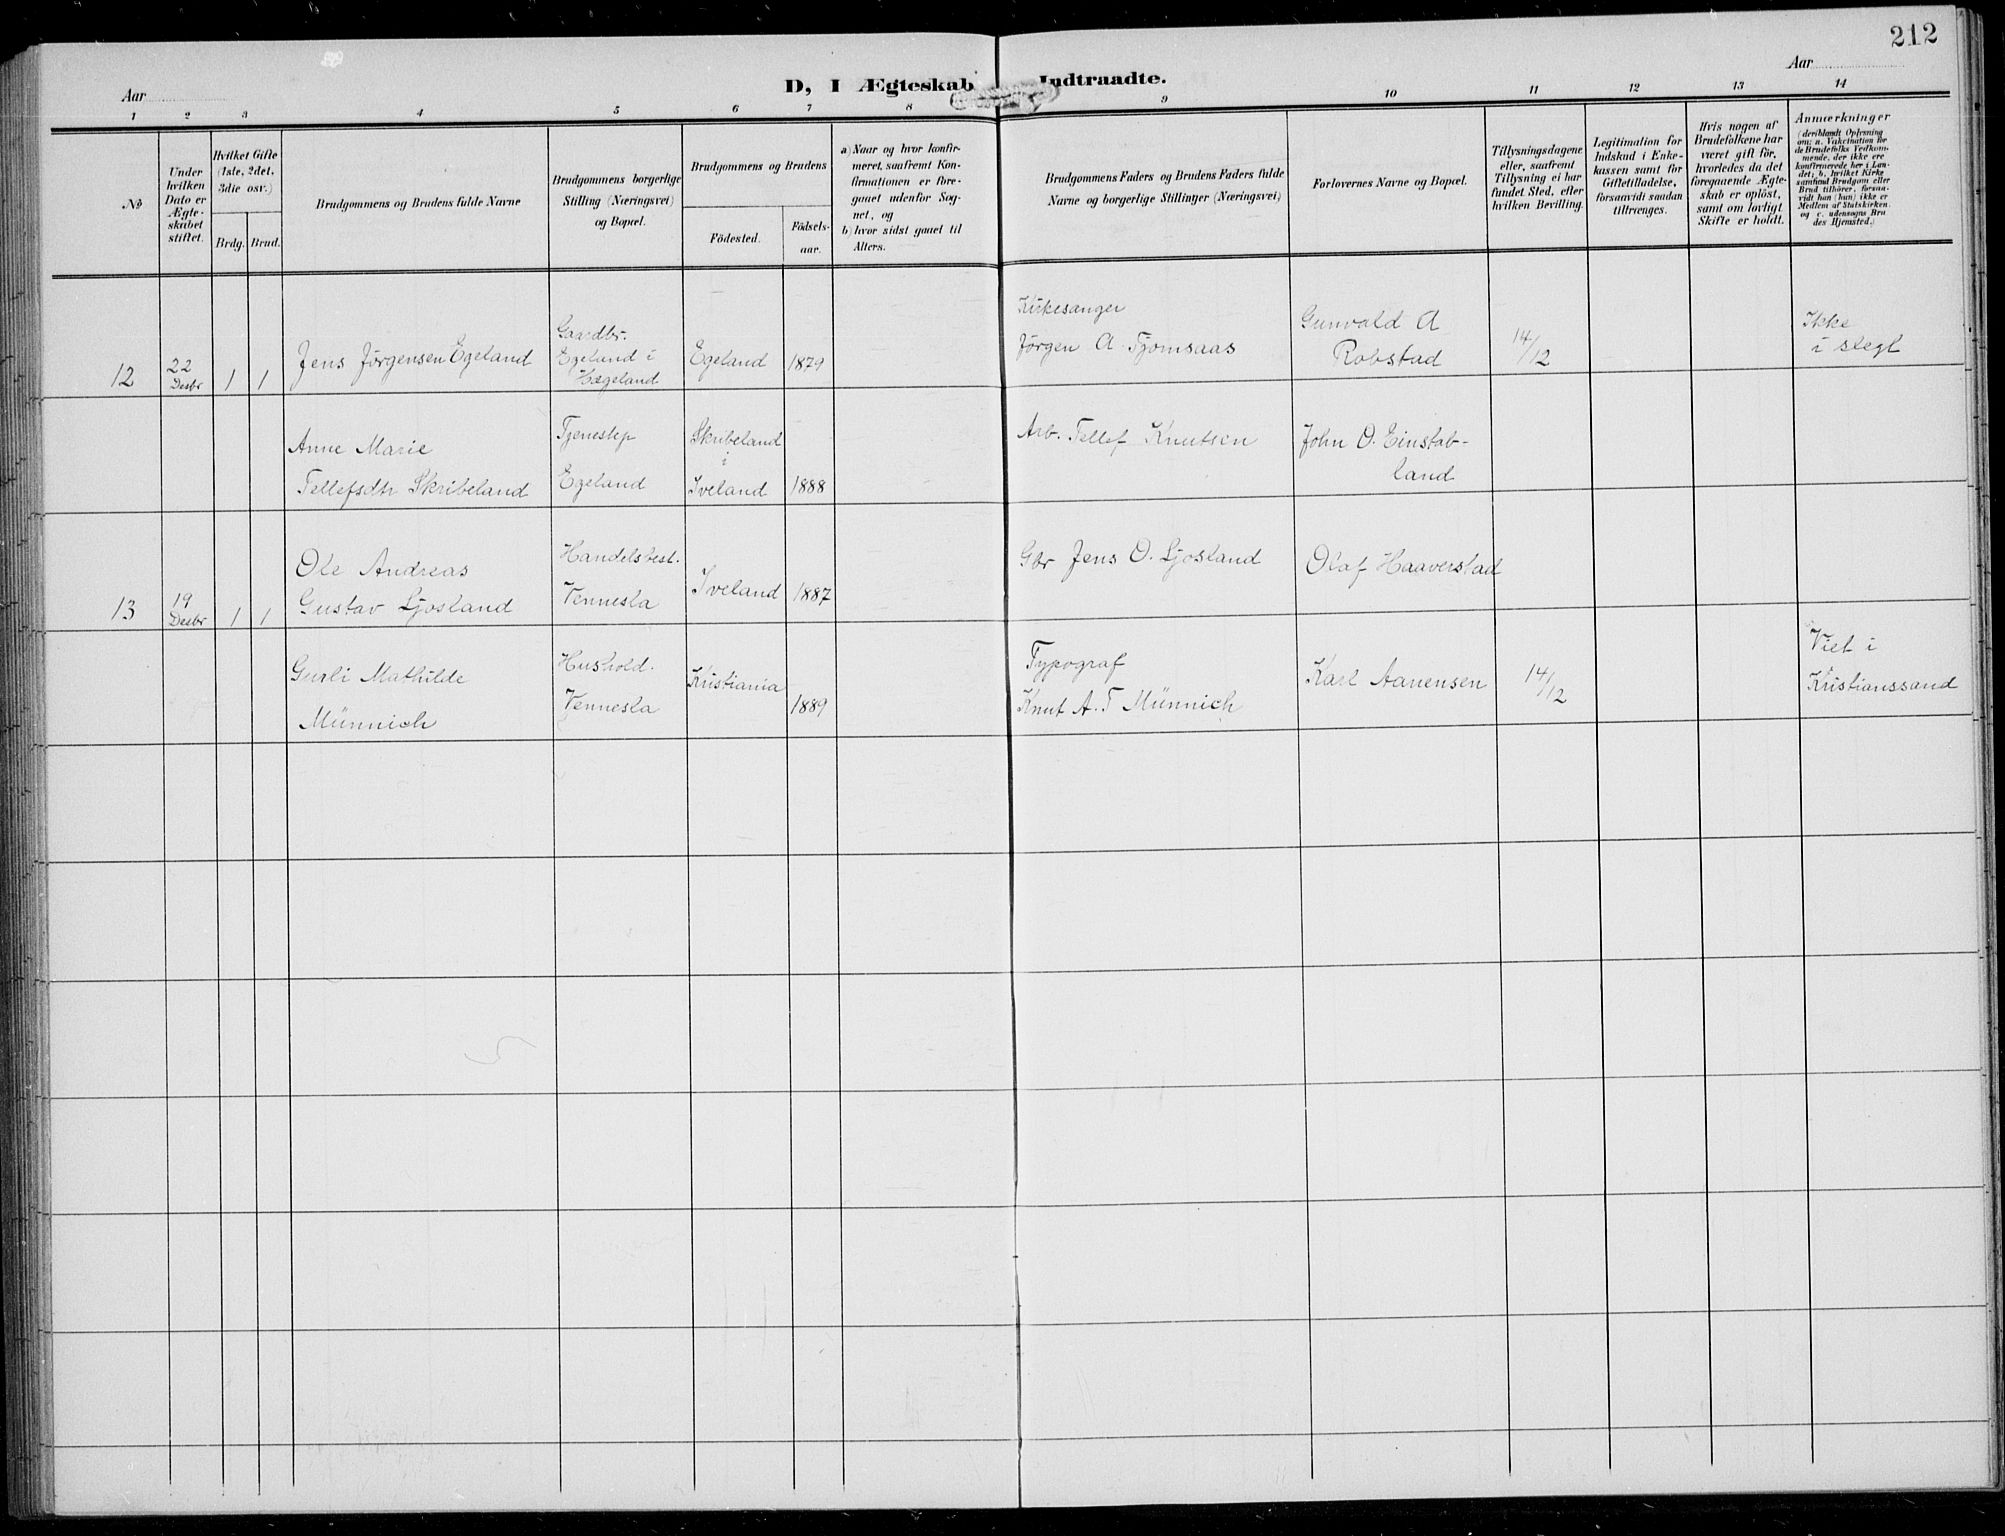 212
Aar
D, I Ægteskab Indtraadte.
Aar
1 2 3 4 5 6 7 8 9 10 11 12 13 14
No
Under
hvilken
Dato er
Ægte-
skabet
stiftet.
Hvilket Gifte
(1ste, 2det,
3die osv.)
Brdg. Brud.
Brudgommens og Brudens fulde Navne
Brudgommens borgerlige
Stilling (Næringsvei)
og Bopæl.
Brudgommens og Brudens
Fødested.
Fødsels-
aar.
a) Naar og hvor konfir-
meret, saafremt Kon-
firmationen er fore-
gaaet udenfor Sog-
net, og
b) hvor sidst gaaet til
Alters.
Brudgommens Faders og Brudens Faders fulde
Navne og borgerlige Stillinger (Næringsvei)
Forlovernes Navne og Bopæl.
Tillysningsdagene
eller, saafremt
Tillysning ei har
fundet Sted, efter
hvilken Bevilling.
Legitimation for
Indskud i Enke-
kassen samt for
Giftetilladelse,
forsaavidt saadan
tiltrænges.
Hvis nogen af
Brudefolkene har
været gift før,
hvorledes da det
foregaaende Ægte-
skab er opløst,
samt om lovligt
Skifte er holdt.
Anmærkninger
(deriblandt Oplysning
om: a. Vakcination for
de Brudefolks Vedkom-
mende, der ikke ere
konfirmerede her i Lan-
det; b. hvilket Kirke
samfund Brudgom eller
Brud tilhører, forsaa-
vidt han (hun) ikke er
Medlem af Statskirken,
og c. udensogns Bru
des Hjemsted.)
12
22
Desbr
1 1
Jens Jørgensen Egeland
Gaardbr.
Egeland i
Hægeland
Egeland
1879
Kirkesanger
Jørgen A. Tjomsaas
Gunvald A
Robstad
14/12
Ikke
i slegt
Anne Marie
Tellefsdtr Skribeland
Tjenestep
Egeland
Skribeland
i
Iveland
1888
Arb. Tellef Knutsen
John O. Einstab-
land
13
19
Desbr
1 1
Ole Andreas
Gustav Ljosland
Handelsbest.
Vennesla
Iveland
1887
Gbr Jens O. Ljosland
Olaf Haaverstad
Gurli Mathilde
Münnich
Hushold.
Vennesla
Kristiania
1889
Typograf
Knut A. T Münnich
Karl Aanensen
14/12
Viet i
Kristianssand